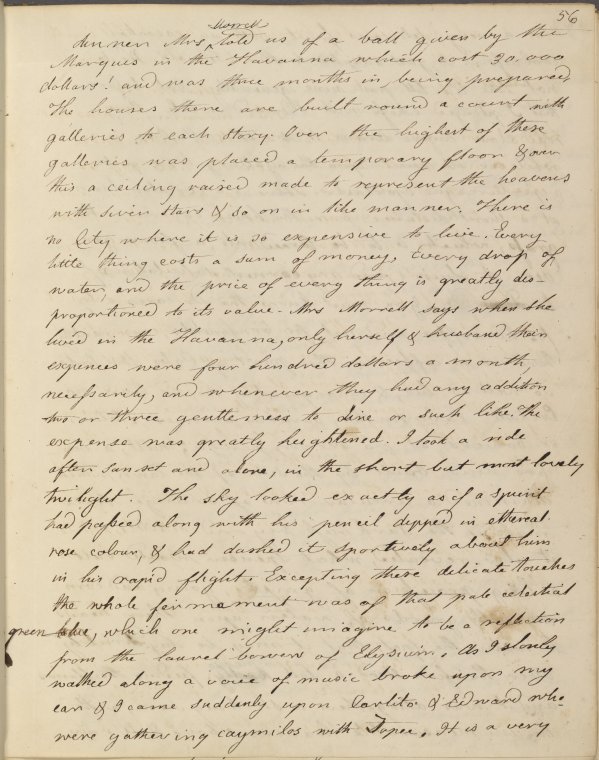 56
Morrell
dinner Mrs ^ told us of a ball given by the
Marques in the Havanna which cost 30.000
dollars! and was three months in, being prepared,
The houses there are built round a court with
galleries to each story. Over the highest of these
galleries was placed a temporary floor & over
this a ceiling raised made to represent the heavens
with silver stars & so on in like manner. There is
no City where it is so expensive to live. Every
little thing costs a sum of money, every drop of
water, and the price of every thing is greatly dis-
proportioned to its value. Mrs Morrell says when she
lived in the Havanna, only herself & husband their
expences were four hundred dollars a month,
necessarily, and whenever they had any addition
two or three gentlemess to dine or such like, the
expense was greatly heightened. I took a ride
after sunset and alone, in the short but most lovely
twilight. The sky looked exactly as if a spirit
had passed along with his pencil dipped in ethereal
rose colour, & had dashed it sportively about him
in his rapid flight. Excepting these delicate touches
the whole firmament was of that pale celestial
green blue, which one might imagine to be a reflection
from the laurel bowers of Elysium. As I slowly
walked along a voice of music broke upon my
ear & I came suddenly upon Carlito & Edward who
were gathering caymilos with Topee. It is a very